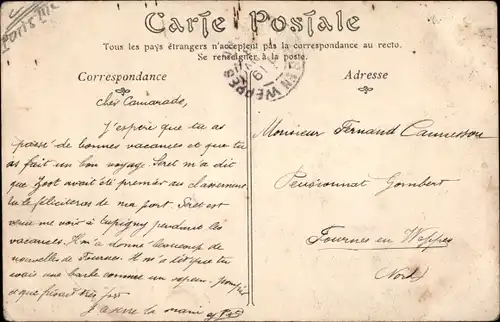 Carte Postale
Tous les pays étrangers n'acceptent pas la correspondance au recto.
Se renseigner à la poste.
Correspondance
Adresse
EN WEPPES
Cher Camarade,
J'espère que tu as
passé de bonnes vacances et que tu
as fait un bon voyage. m'a dit
que avait été premier au classement
tu le féliciteras de ma part. est
venu me voir à pendant les
vacances. Il m'a donné beaucoup de
nouvelles de Fournes. Il m'a dit que tu
avais une barbe comme un sapeur-pompier
et que
serre la main
Monsieur Fernand
Pensionnat Gombert
Fournes en Weppes
Nord